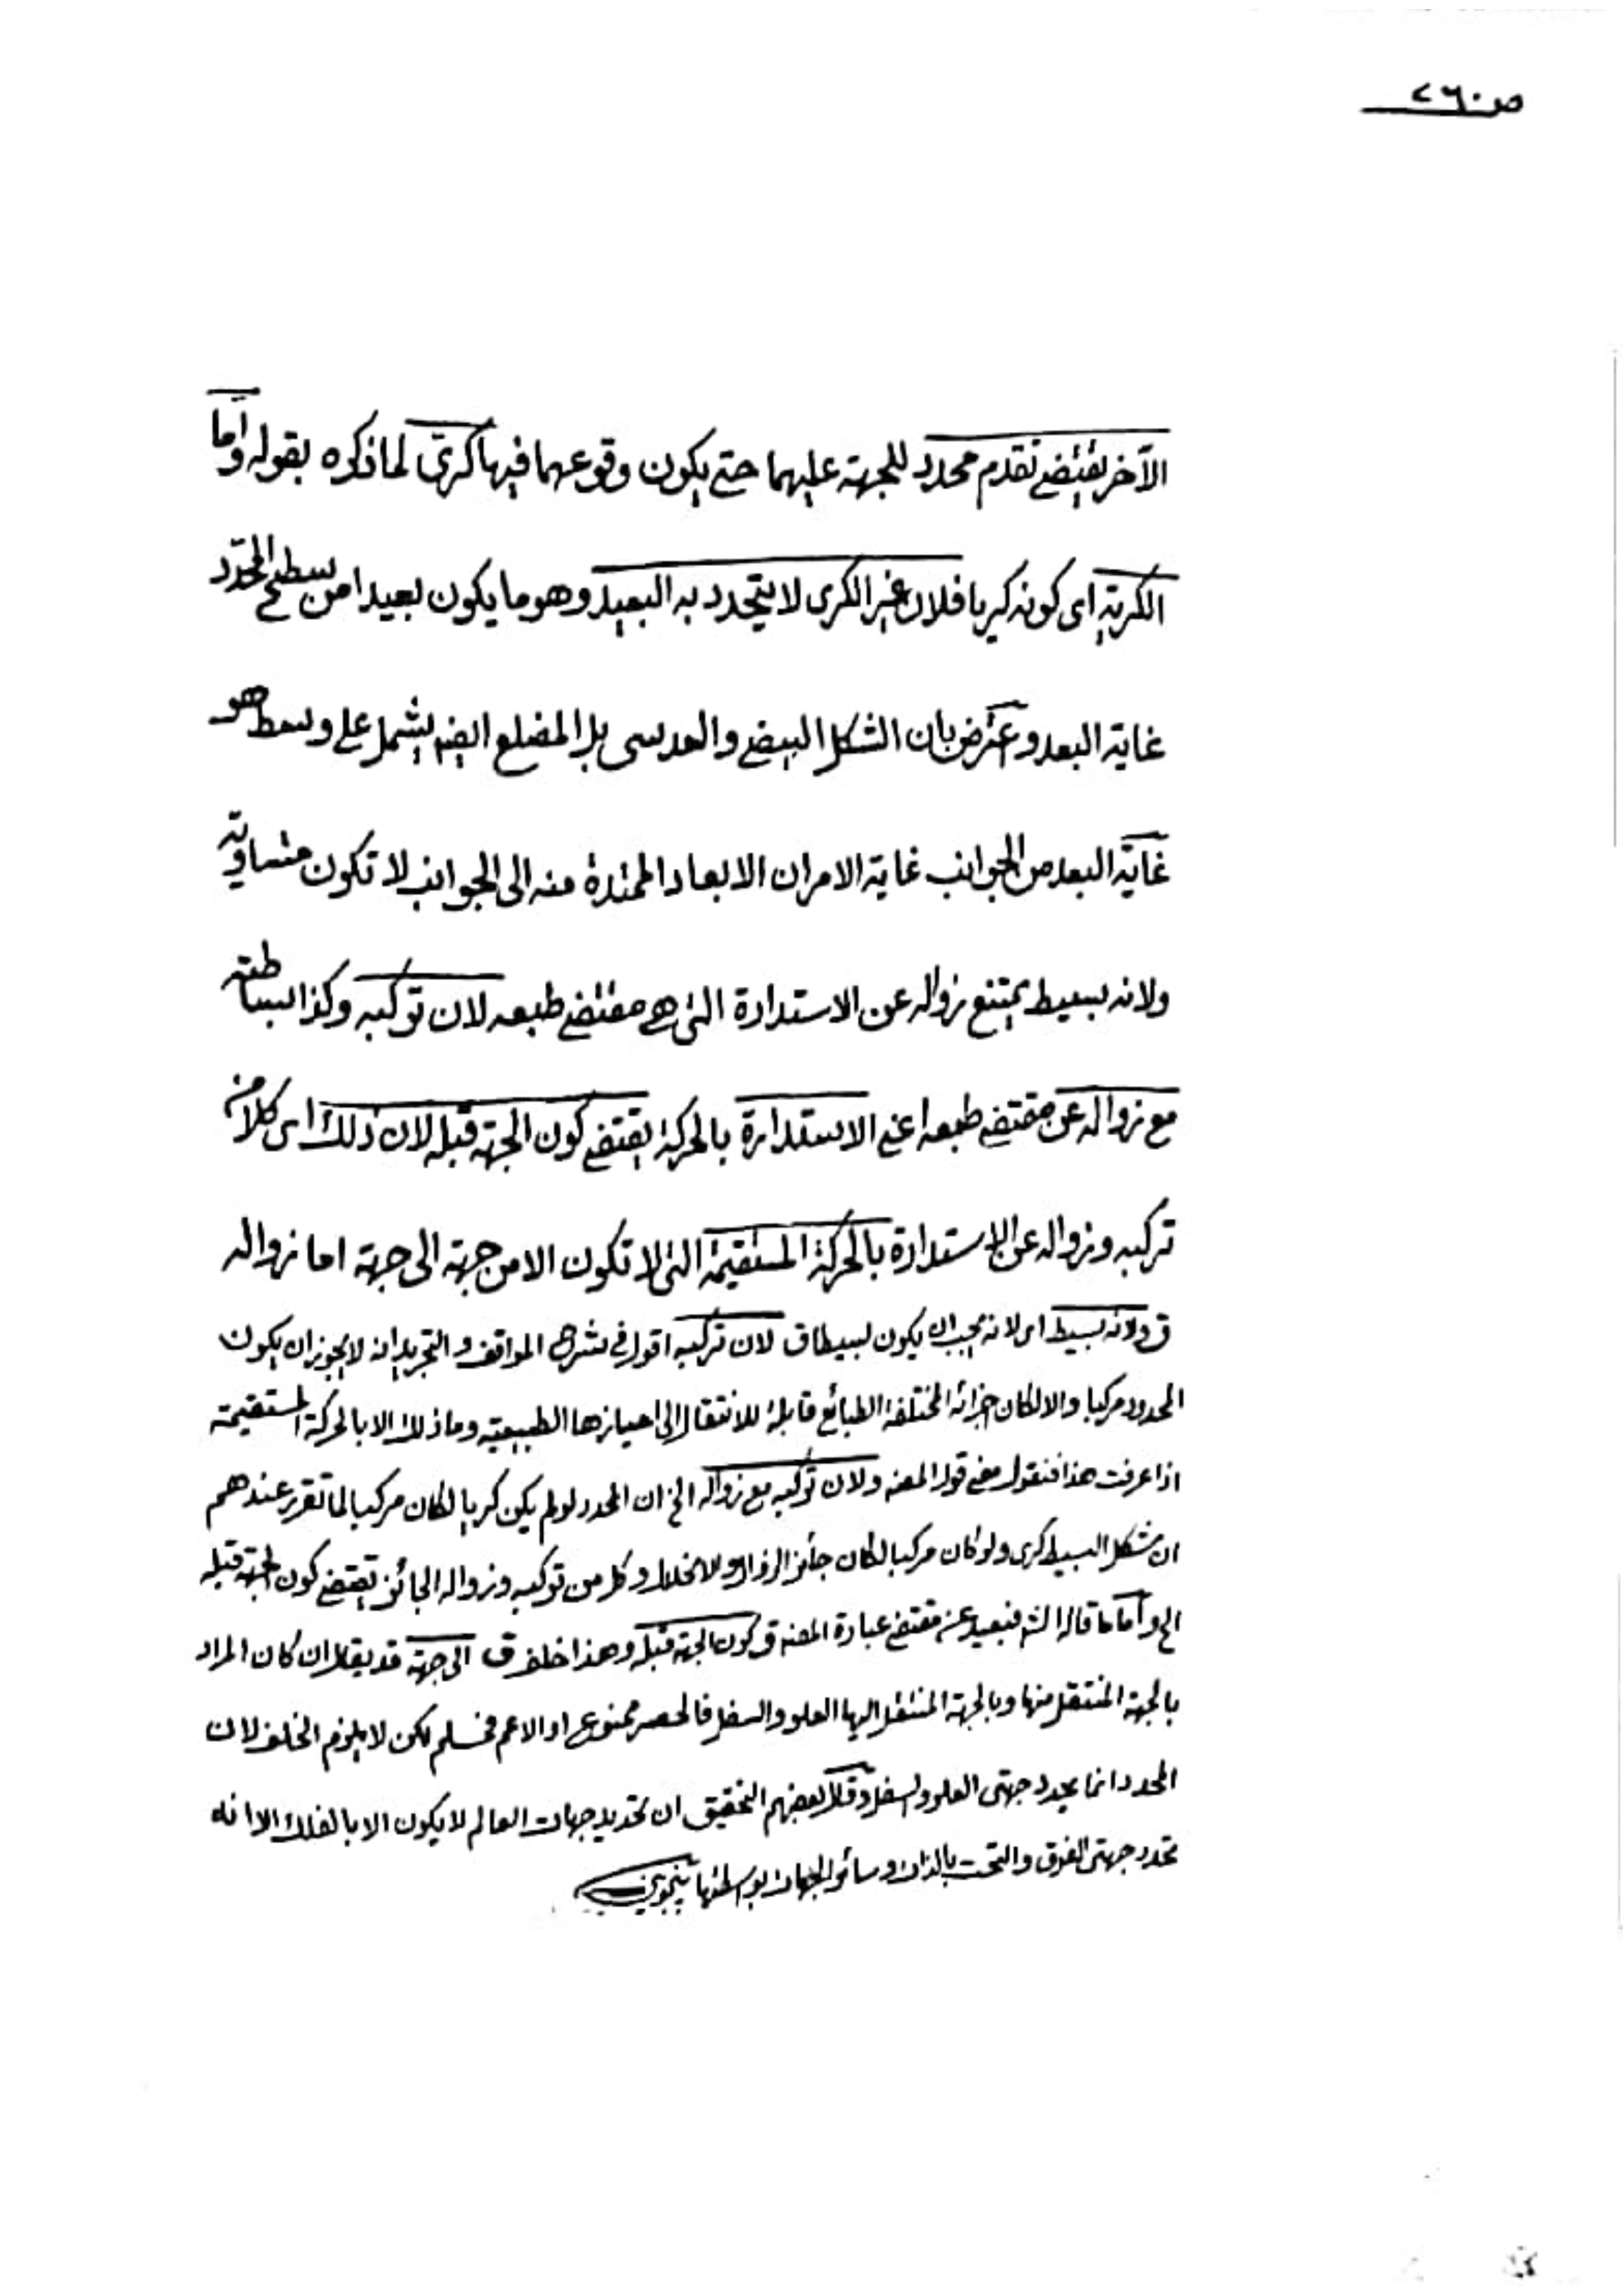 ص ٢٦٠
الآخر يقتضي تقدم محدد للجهة عليهما حتى يكون وقوعهما فيها كرى لما ذكره بقوله واما
الكرية اى كونه كريا فلان غير الكرى لا يتحدد به البعيد وهو ما يكون بعيدا من سطح المحدد
غاية البعد وعترض بان الشكل البيضى والعدسى بل المضلع ايضه يشمل على وسط هو
غاية البعد من الجوانب غاية الامران الابعاد الممتدة منه الى الجوانب لا تكون متساوية
ولانه بسيط يمتنع زواله عن الاستدارة التى هى مقتضى طبعه لان تركبه وكذا بساطته
مع زواله عن مقتضى طبعه اعنى الاستدارة بالحركة يقتضى كون الجهة قبله لان ذلك اى كلا من
تركبه وزواله عن الاستدارة بالحركة المستقيمة التى لا تكون الا من جهة الى جهة اما زواله
ق ولانه بسيط اى لانه يجب ان يكون بسيطا ق لان تركبه اقول فى شرح المواقف والتجريد انه لا يجوز ان يكون
المحدود مركبا والا لكان اجزائه المختلفة الطبائع قابلة للانتقال الى احيازها الطبيعية وما ذلك الا بالحركة المستقيمة
اذا عرفت هذا فنقول معنى قول المصنه ولان تركبه مع زواله الخ ان المحدد لو لم يكن كريا لكان مركبا لما تقرر عندهم
ان شكل البسيط كرى ولو كان مركبا لكان جائز الزوال والانحلال وكل من تركبه وزواله الجائز يقتضى كون الجهة قبله
الخ واما ما قاله الشه فبعيد عن مقتضى عبارة المصنه ق كون الجهة قبله وهذا خلف ق الى جهة قد يقال ان كان المراد
بالجهة المنتقل منها وبالجهة المنتقل اليها العلو والسفل فالحصر ممنوع او الاعم فمسلم لكن لا يلزم الخلف لان
المحدد انما يحدد جهتى العلو والسفل وقال بعضهم التحقيق ان تحديد جهات العالم لا يكون الا بالفلك الا انه
تحدد جهتى الفوق والتحت بالذات وسائر الجهات بواسطتها